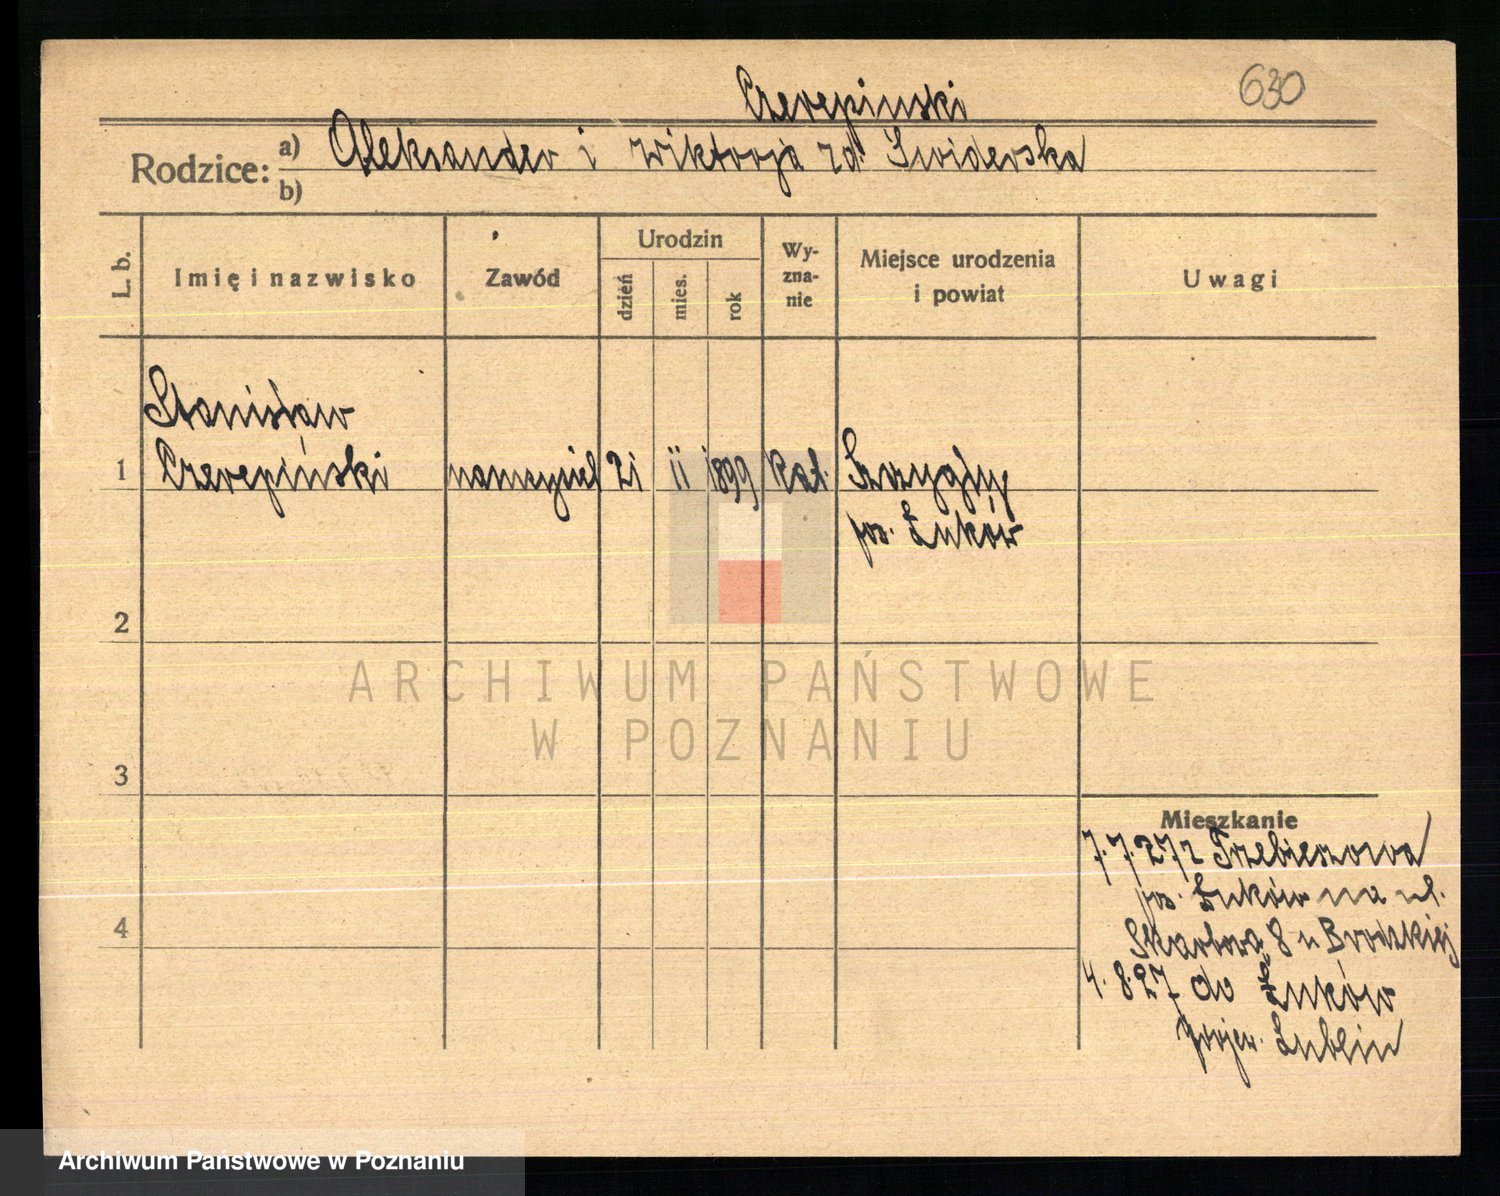 630
Czerepinski
Rodzice: a) Aleksander i Wiktorja zd. Swiderska
b)
L. b.
Imię i nazwisko
Zawód
Urodzin
dzień
mies.
rok
Wy-
zna-
nie
Miejsce urodzenia
i powiat
Uwagi
Stanisław
1 Czerepiński nauczyciel 21 II 1899 kat.
pow. Łuków
2
3
4
Mieszkanie
7.7.27 z Trzebieszowa
pow. Łuków na ul.
Skarbowa 8 u Brodzkiej
4.8.27 do Łuków
wojew. Lublin
ARCHIWUM PAŃSTWOWE
W POZNANIU
Archiwum Państwowe w Poznaniu